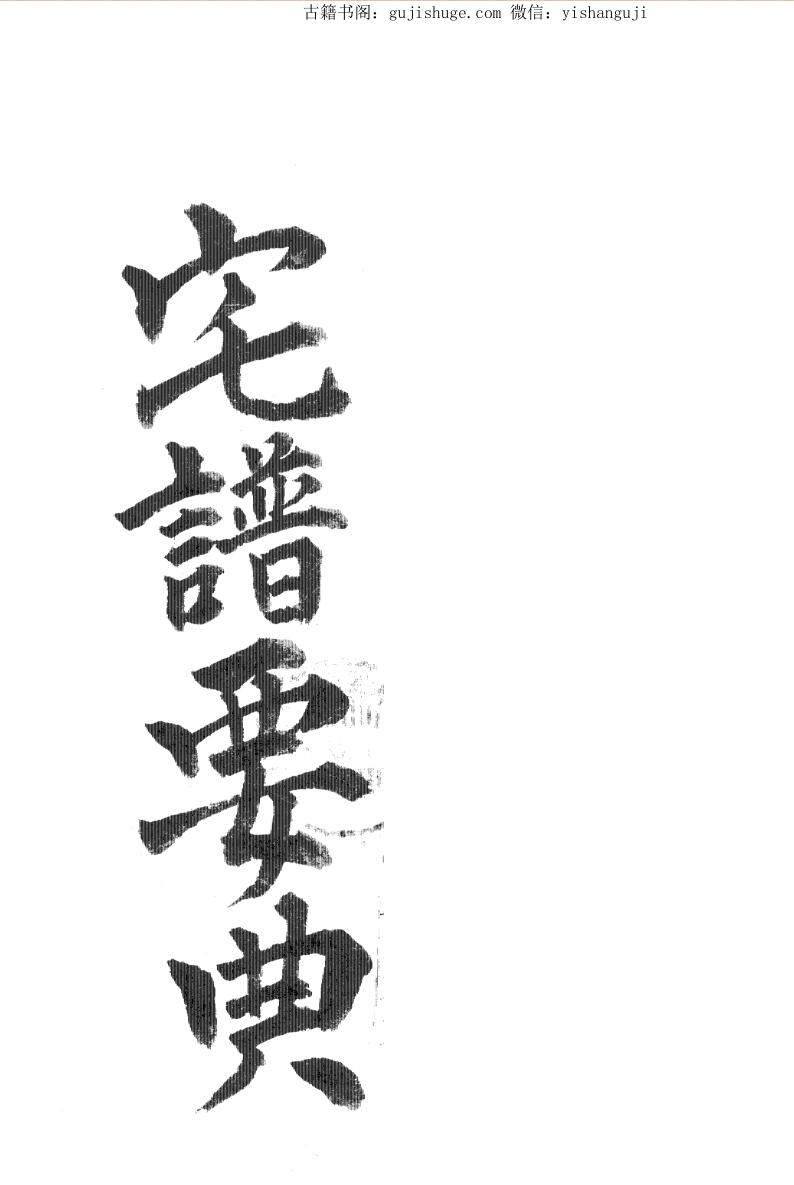 古籍书阁：gujishuge.com 微信：yishanguji
宅譜要典